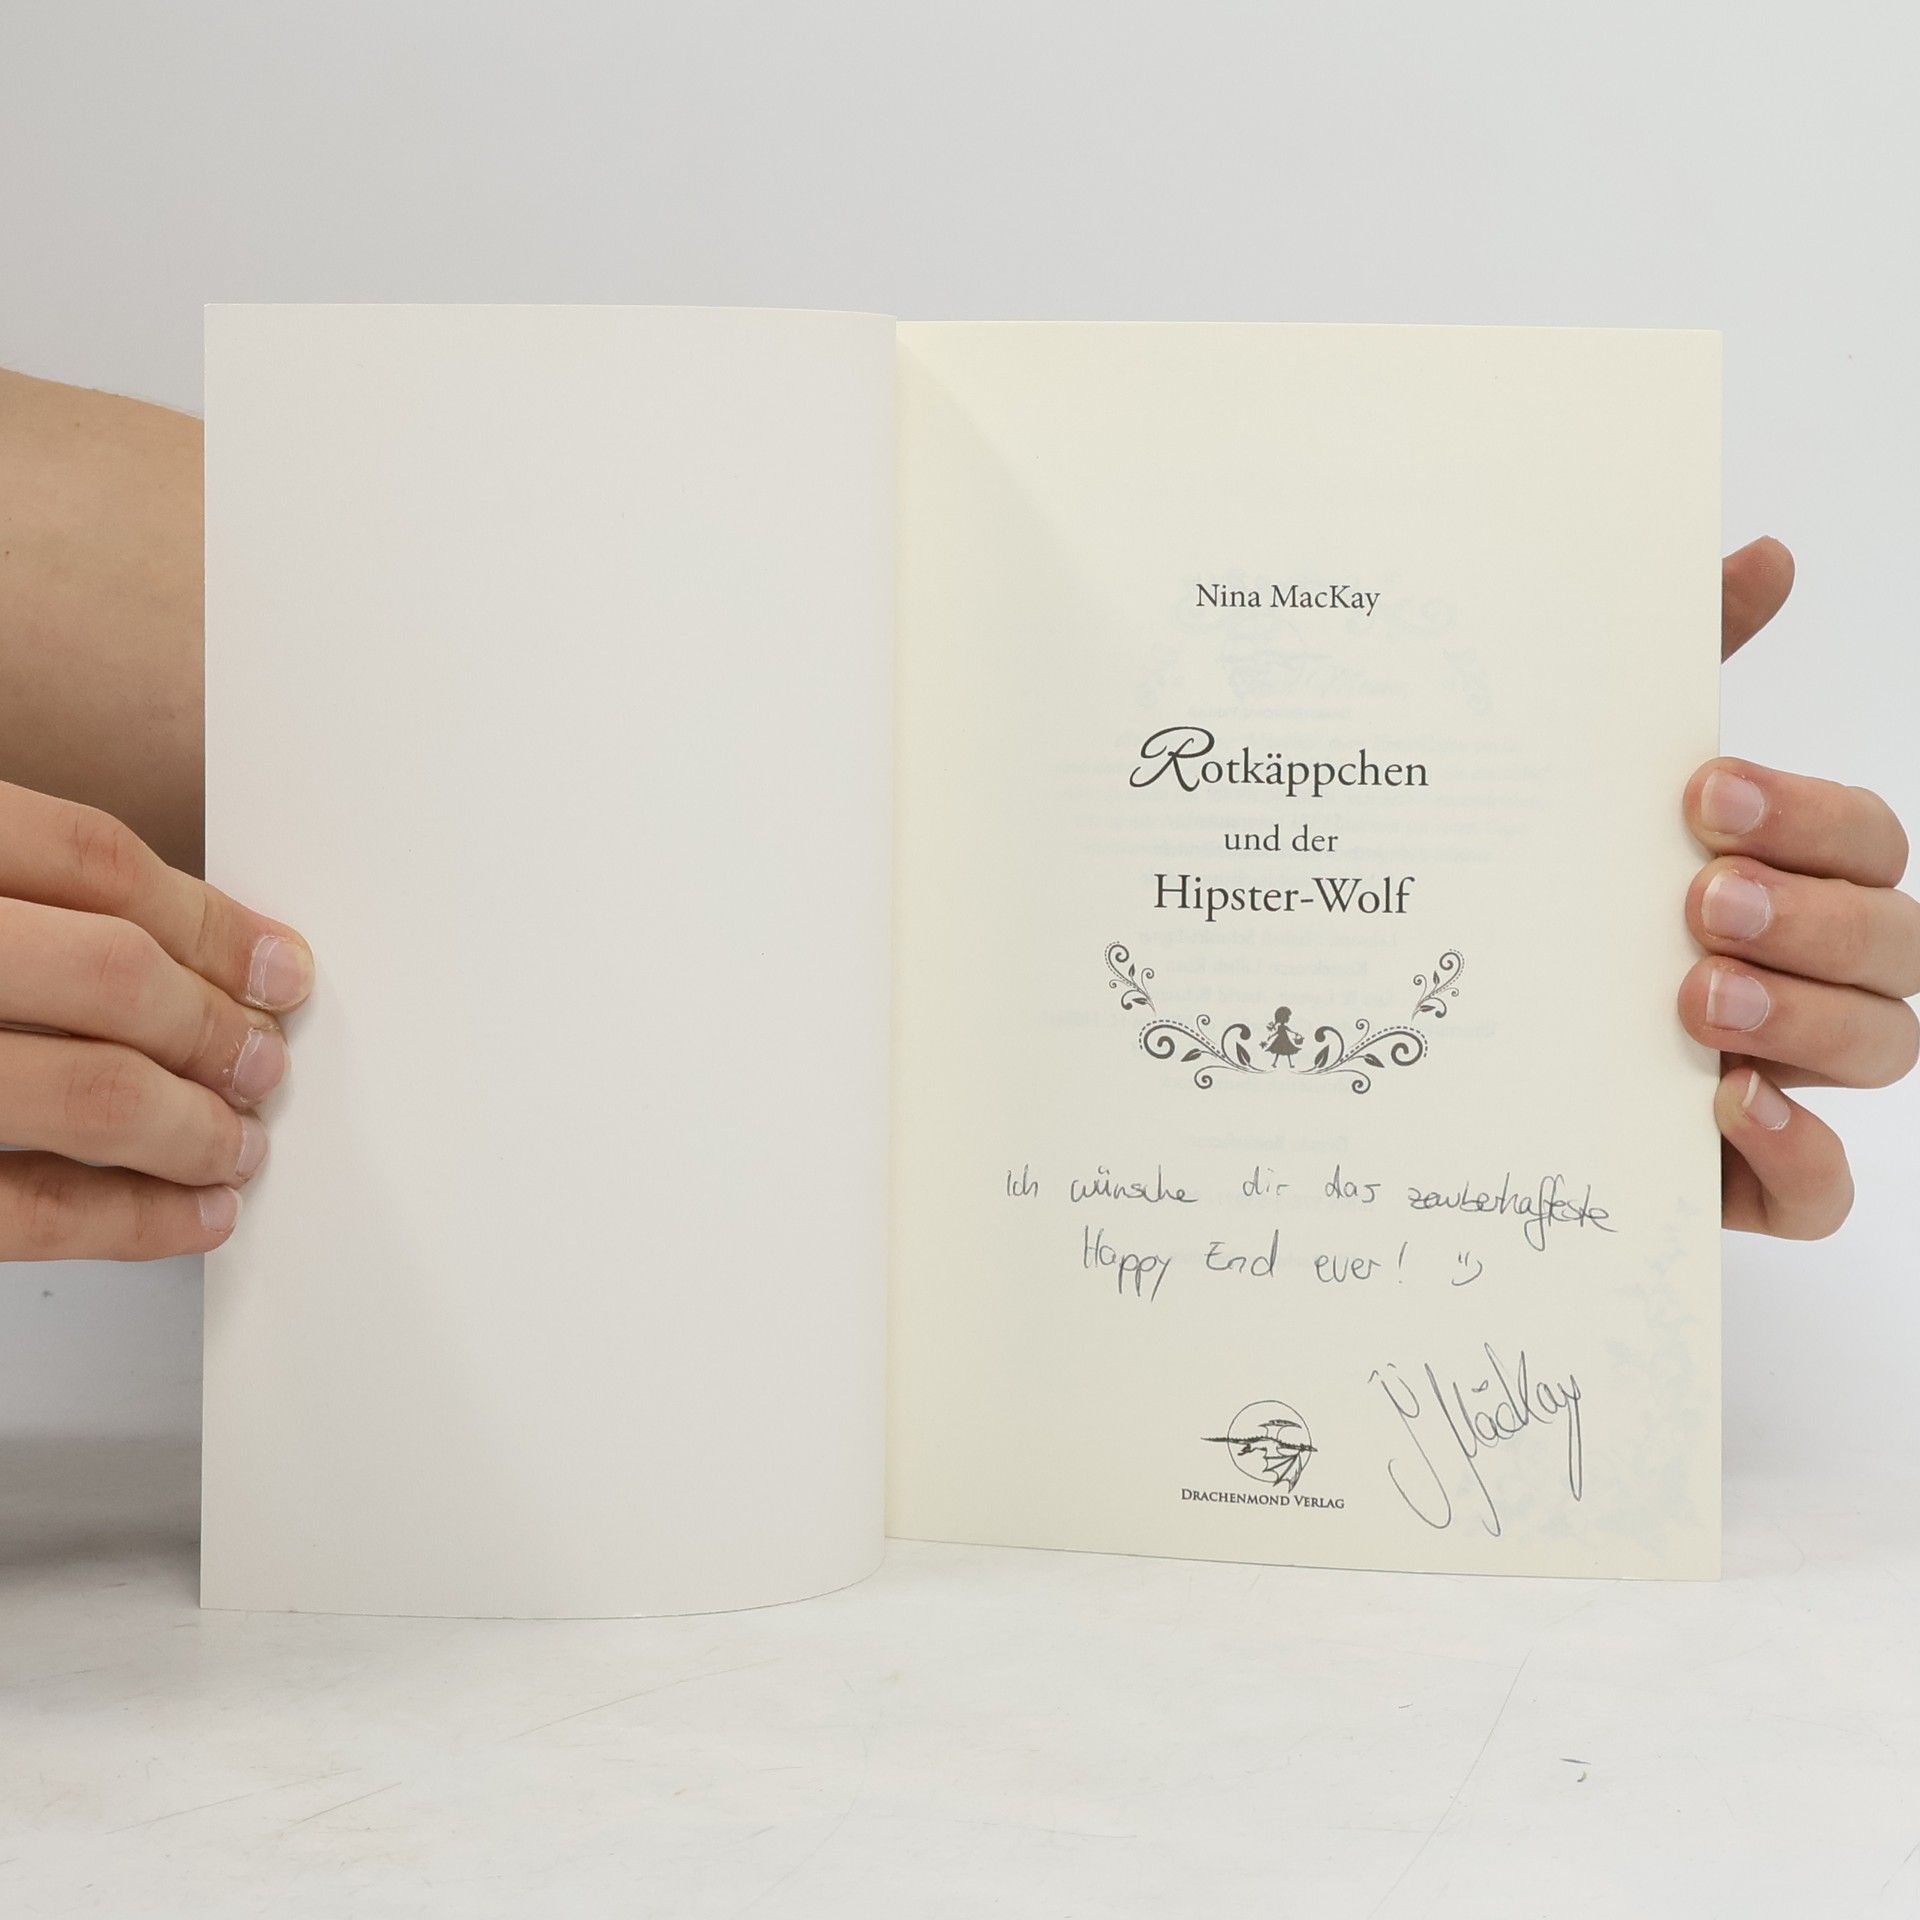 Nina MacKay
Rotkäppchen
und der
Hipster-Wolf
Ich wünsche dir das zauberhafteste
Happy End ever! :)
MacKay
DRACHENMOND VERLAG